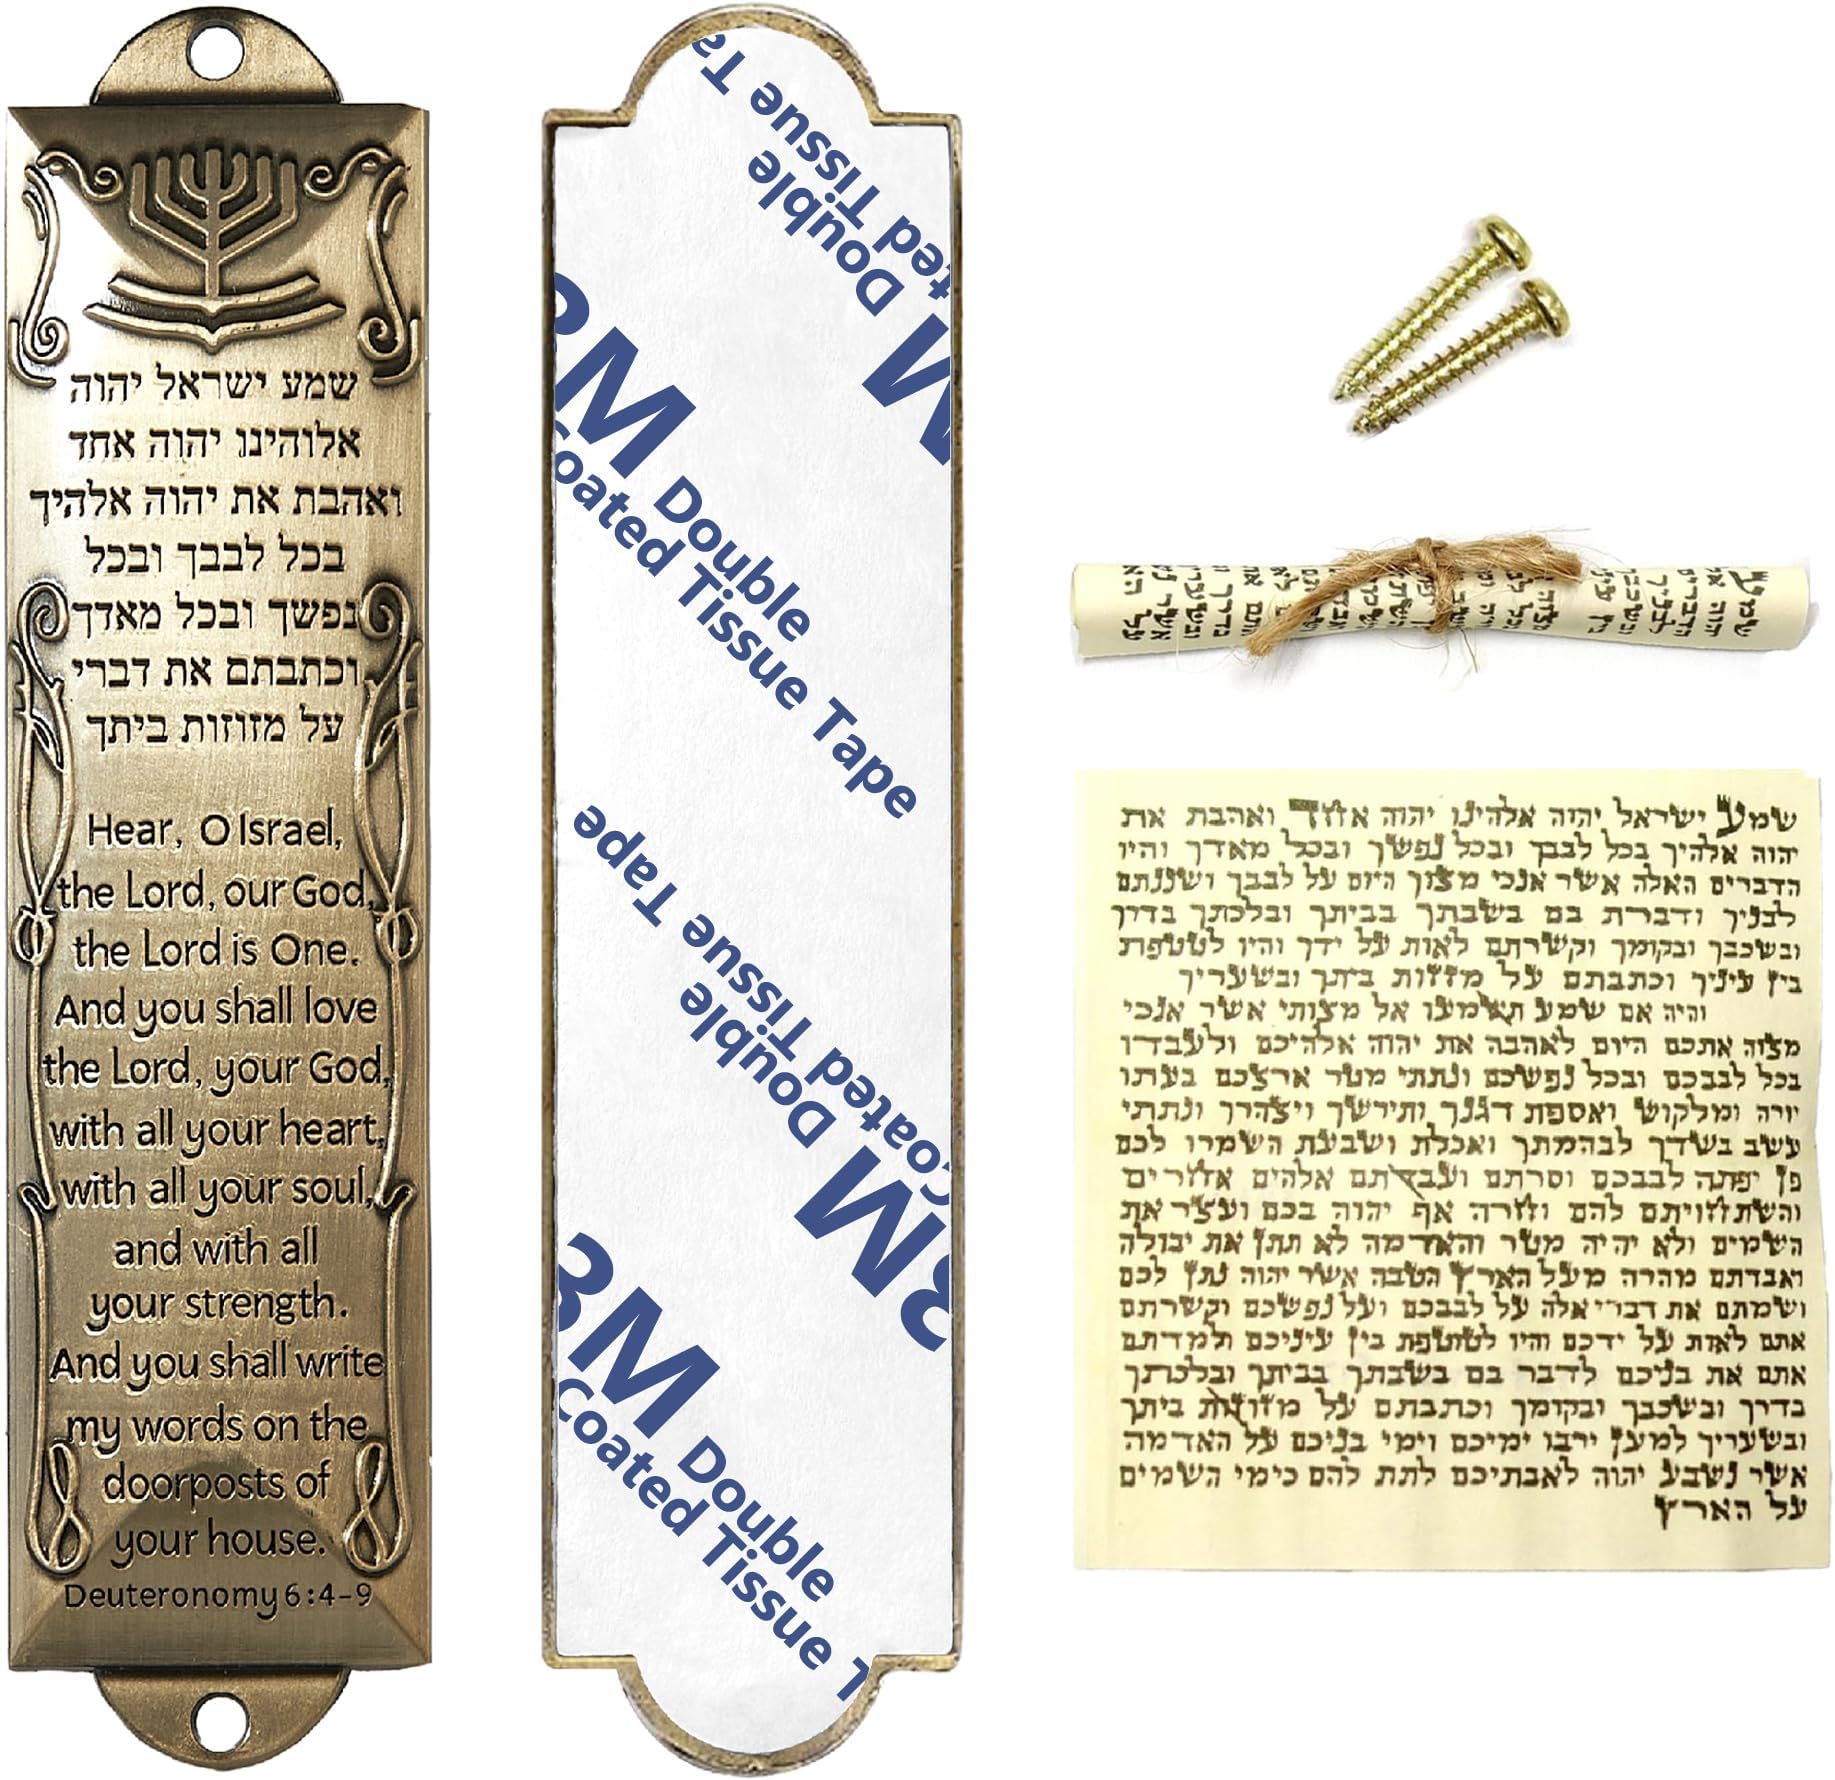 שמע ישראל יהוה
אלוהינו יהוה אחד
ואהבת את יהוה אלהיך
בכל לבבך ובכל
נפשך ובכל מאדך
וכתבתם את דברי
על מזוזות ביתך
Hear, O Israel,
the Lord, our God,
the Lord is One.
And you shall love
the Lord, your God,
with all your heart,
with all your soul,
and with all
your strength.
And you shall write
my words on the
doorposts of
your house.
Deuteronomy 6:4-9
Double
ated Tissue Ta
M
3M Double
Coated Tissue Tape
3M Double
Coated Tissue Tape
3M Double
Coated Tissue T
שמע ישראל יהוה אלהינו יהוה אחד ואהבת את
יהוה אלהיך בכל לבבך ובכל נפשך ובכל מאדך והיו
הדברים האלה אשר אנכי מצוך היום על לבבך ושננתם
לבניך ודברת בם בשבתך בביתך ובלכתך בדרך
ובשכבך ובקומך וקשרתם לאות על ידך והיו לטטפת
בין עיניך וכתבתם על מזזות ביתך ובשעריך
והיה אם שמע תשמעו אל מצותי אשר אנכי
מצוה אתכם היום לאהבה את יהוה אלהיכם ולעבדו
בכל לבבכם ובכל נפשכם ונתתי מטר ארצכם בעתו
יורה ומלקוש ואספת דגנך ותירשך ויצהרך ונתתי
עשב בשדך לבהמתך ואכלת ושבעת השמרו לכם
פן יפתה לבבכם וסרתם ועבדתם אלהים אחרים
והשתחויתם להם וחרה אף יהוה בכם ועצר את
השמים ולא יהיה מטר והאדמה לא תתן את יבולה
ואבדתם מהרה מעל הארץ הטבה אשר יהוה נתן לכם
ושמתם את דברי אלה על לבבכם ועל נפשכם וקשרתם
אתם לאות על ידכם והיו לטוטפת בין עיניכם ולמדתם
אתם את בניכם לדבר בם בשבתך בביתך ובלכתך
בדרך ובשכבך ובקומך וכתבתם על מזוזות ביתך
ובשעריך למען ירבו ימיכם וימי בניכם על האדמה
אשר נשבע יהוה לאבתיכם לתת להם כימי השמים
על הארץ